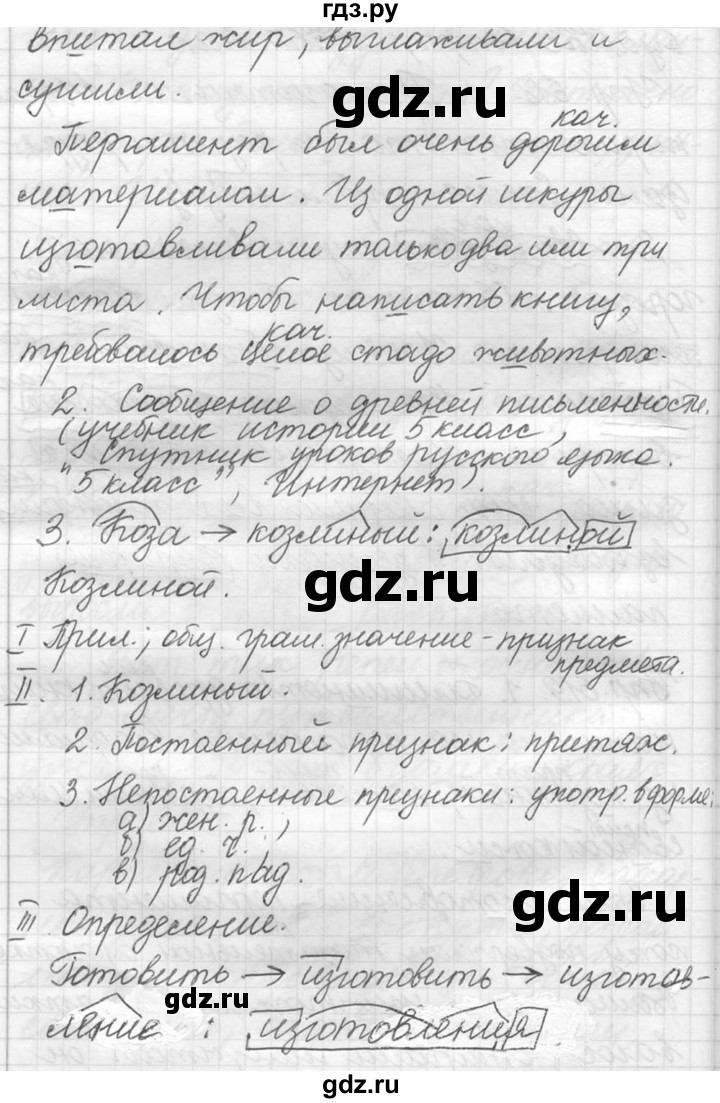 гдз.ру
впитал жир, выглаживали и
сушили.
gdz.ru
кач.
Пергамент был очень дорогим
материалом. Из одной шкуры
изготавливали только два или три
gdz.ru
листа. Чтобы написать книгу,
кач.
требовалось целое стадо животных.
2. Сообщение о древней письменности.
(учебник истории 5 класс,
спутник уроков русского языка.
"5 класс", Интернет).
gdz.ru
3. Коза → козлиный: козлиной
Козлиной.
gdz.ru
I Прил.; общ. грам. значение - признак
предмета.
II. 1. Козлиный.
2. Постоенный признак: притяж.
gdz.ru
3. Непостоенные признаки: употр. в форме:
а) жен. р.,
б) ед. ч.,
в) род. пад.
gdz.ru
III. Определение.
Готовить → изготовить → изготов-
gdz.ru
ление : изготовления
gdz.ru
gdz.ru